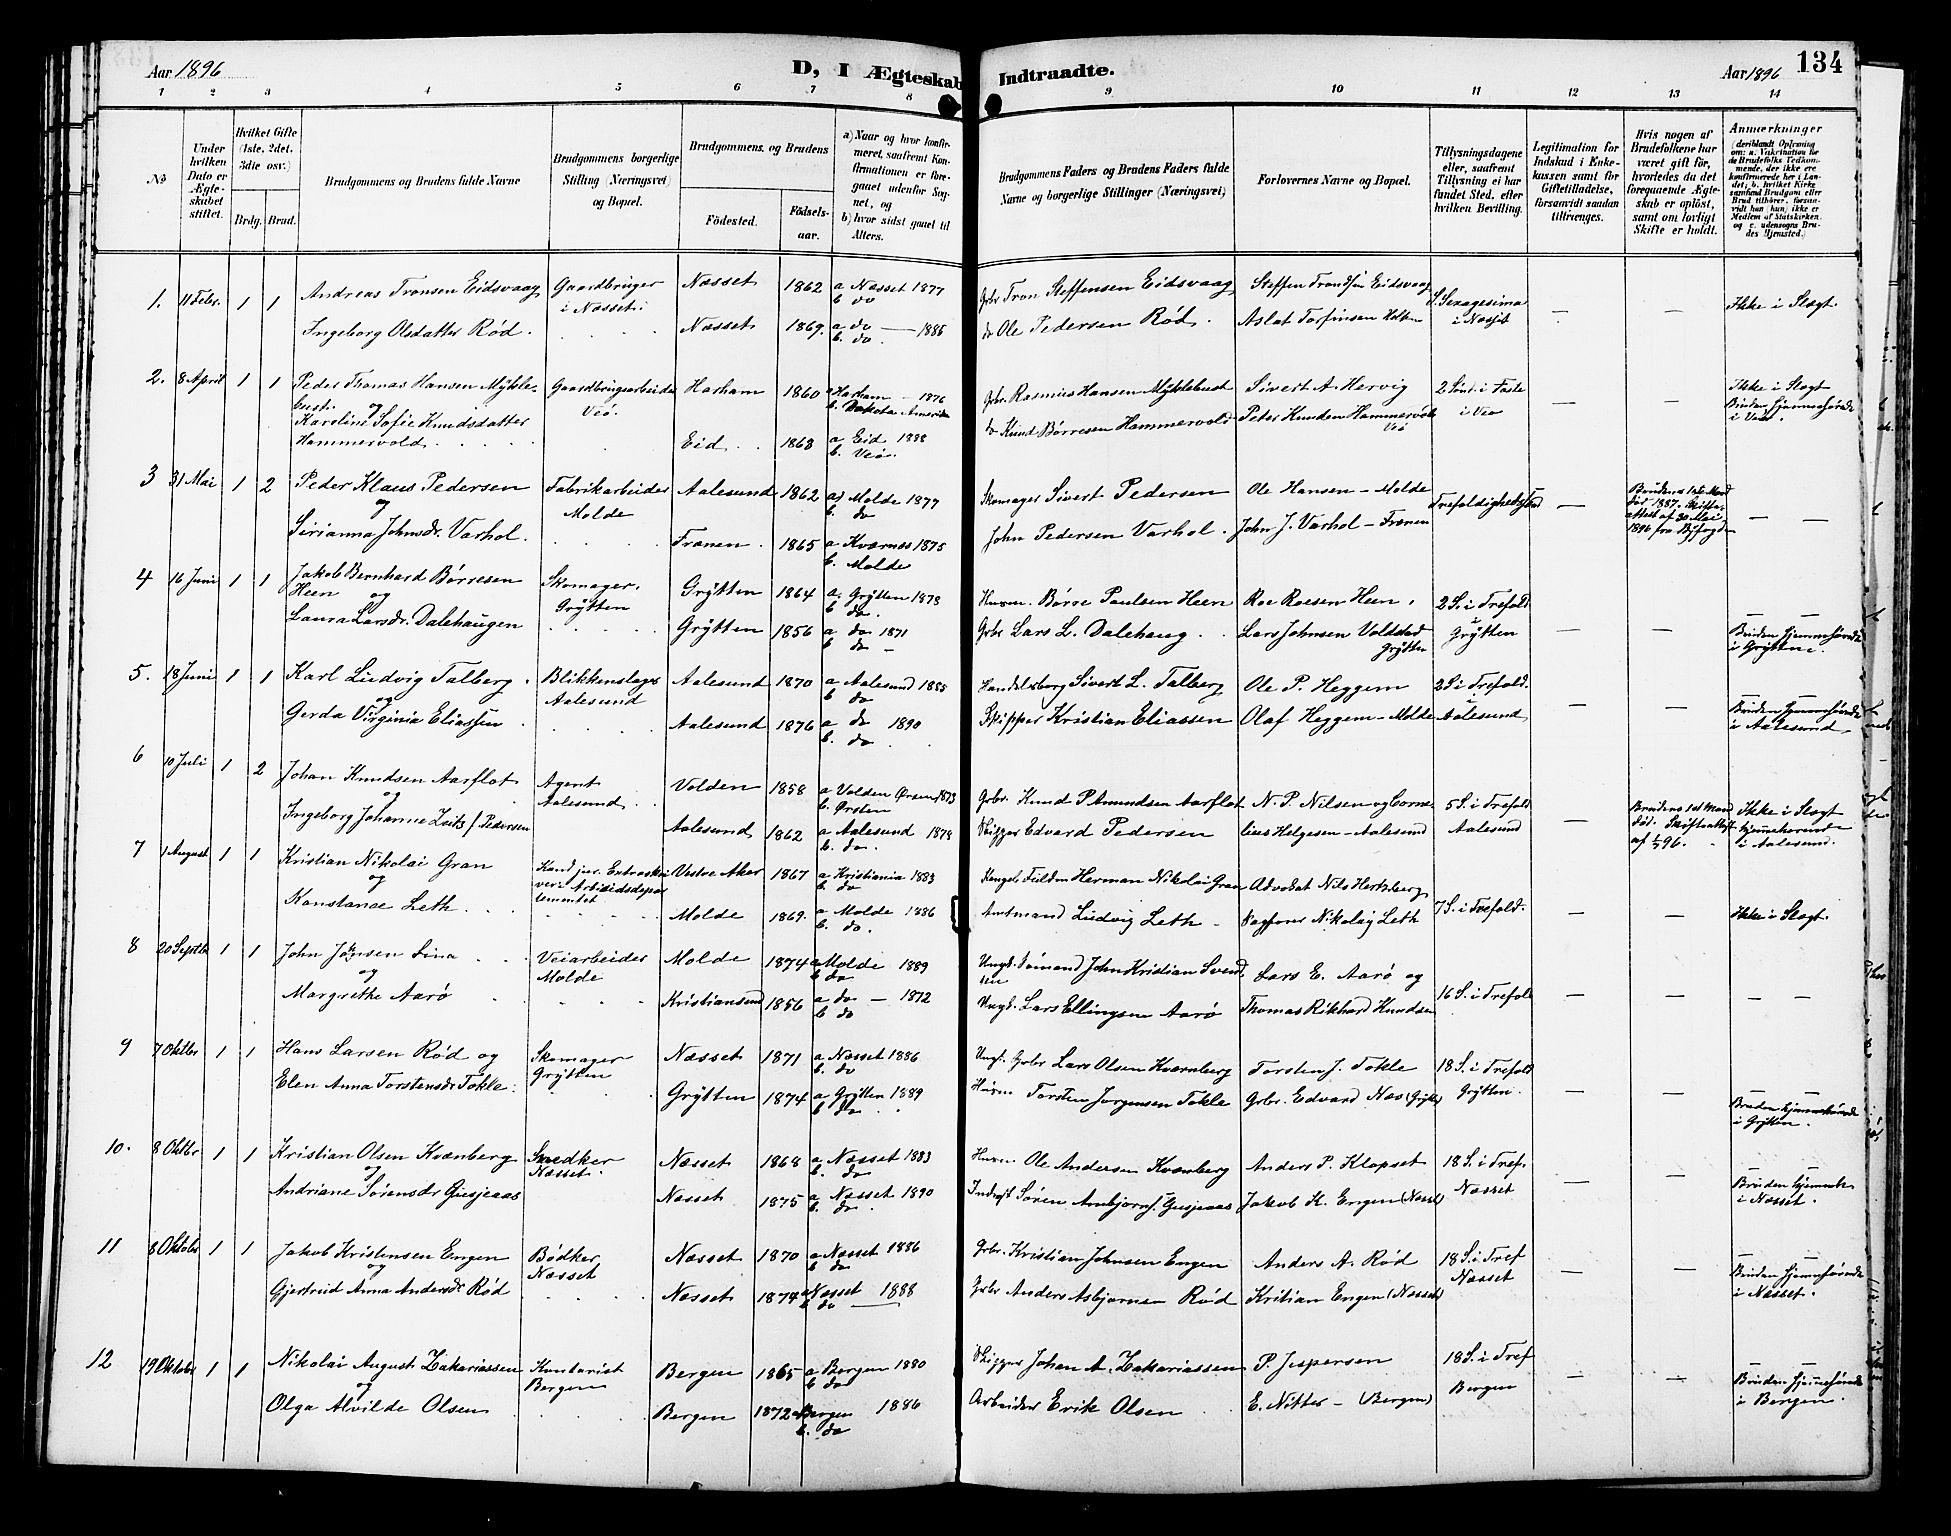 134
Aar 1896
D, I Ægteskab Indtraadte.
Aar 1896
1 2 3 4 5 6 7 8 9 10 11 12 13 14
No
Under hvilken Dato er Ægteskabet stiftet.
Hvilket Gifte (1ste, 2det, 3die osv.)
Brdg. Brud.
Brudgommens og Brudens fulde Navne
Brudgommens borgerlige Stilling (Næringsvei) og Bopæl.
Brudgommens og Brudens
Fødested.
Fødselsaar.
a) Naar og hvor konfirmeret, saafremt Konfirmationen er foregaaet udenfor Sognet, og
b) hvor sidst gaaet til Alters.
Brudgommens Faders og Brudens Faders fulde Navne og borgerlige Stillinger (Næringsvei)
Forlovernes Navne og Bopæl.
Tillysningsdagene eller, saafremt Tillysning ei har fundet Sted, efter hvilken Bevilling.
Legitimation for Indskud i Enkekassen samt for Giftetilladelse, forsaavidt saadan tiltrænges.
Hvis nogen af Brudefolkene har været gift før, hvorledes da det foregaaende Ægteskab er opløst, samt om lovligt Skifte er holdt.
Anmerkninger (deriblandt Oplysning om: a. Vakcination for de Brudefolks Vedkommende, der ikke ere konfirmerede her i Landet; b. hvilket Kirkesamfund Brudgom eller Brud tilhører, forsaavidt han (hun) ikke er Medlem af Statskirken, og c. udensogns Brudes Hjemsted.)
1. 11 Febr. 1 1 Andreas Tronsen Eidsvaag Gaardbruger i Næsset. Næsset 1862 a Næsset 1877 b do Gbr Tron Steffensen Eidsvaag Steffen Trondsen Eidsvaag S. Sexagesima i Næsset — — Ikke i Slægt.
Ingeborg Olsdatter Rød. Næsset 1869. a do — 1885 b. do. do Ole Pedersen Rød. Aslak Torfinsen Holten
2. 8 April 1 1 Peder Thomas Hansen Myklebust og Gaardbrugsarbeider Veø. Harham 1860 a Harham — 1876 b. Dakota Amerika Gbr. Rasmus Hansen Myklebust Sivert A. Hervig 2 Sønd. i Faste i Veø — — Ikke i Slægt Bruden hjemmehørende i Veø.
Karoline Sofie Knudsdatter Hammervold Eid 1868 a Eid 1888 b. Veø. do Knud Børresen Hammervold Peter Knudsen Hammervold Veø
3 31 Mai 1 2 Peder Klaus Pedersen og Fabrikarbeider Molde Aalesund 1862 a) Molde 1877 b. do Skomager Sivert Pedersen Ole Hansen – Molde Trefoldighedssønd — Brudens 1ste Mand død 1887. Skifteattest af 30 Mai 1896 fra Byfogden — —
Sirianna Johnsdr. Varhol. Frænen. 1865 a. Kværnes 1875 b. Molde John Pedersen Varhol. John J. Varhol – Frænen
4 16 Juni 1 1 Jakob Bernhard Børresen Heen og Skomager. Grytten Grytten 1864 a. Grytten 1878 b. do. Husm. Børre Paulsen Heen Roe Roesen Heen 2 S. i Trefold. i Grytten — — Bruden hjemmehørende i Grytten.
Laura Larsdr. Dalehaugen Grytten 1856 a do 1871 b do – Gbr Lars L. Dalehaug Lars Johnsen Voldstad Grytten
5. 18 Juni 1 1 Karl Ludvig Talberg og Blikkenslager Aalesund Aalesund 1870 a Aalesund 1885 b do Handelsborg Sivert L. Talberg Ole P. Heggem 2 S. i Trefold. i Aalesund — — Bruden hjemmehørende i Aalesund
Gerda Virginia Eliassen Aalesund 1876 a do 1890 b. do Skipper Kristian Eliassen Olaf Heggem – Molde
6 10 Juli 1 2 Johan Knudsen Aarflot og Agent Aalesund Volden 1858 a Volden Ørsten 1873 b. Ørsten Gbr. Knud P. Amundsen Aarflot N. P. Nilsen og Cornelius Helgesen – Aalesund 5 S. i Trefold Aalesund — Brudens 1st Mand død. Skifteattest af 1/7 96. Ikke i Slægt hjemmehørende i Aalesund.
Ingeborg Johanne f. Pedersen Aalesund 1862 a. Aalesund 1878 b. do. Skipper Edvard Pedersen
7 1 August 1 1 Kristian Nikolai Gran og Kand jur. Extraskriver i Arbeidsdepartementet Vestre Aker 1867 a Kristiania 1883 b do Herman Nikolai Gran Advokat Nils Hertzberg 7 S. i Trefold. — — Ikke i Slægt.
Konstance Leth. Molde 1869. a Molde 1886 b. do. Amtmand Ludvig Leth – Sagfører Nikolaj Leth
8 20 Septbr 1 1 John Johnsen Lina og Veiarbeider Molde Molde 1874 a Molde 1889 b do Ungk. Sømand John Kristian Svendsen Lars E. Aarø og 16 S. i Trefold — — — —
Margrethe Aarø Kristiansund 1856 a do — 1872 b do Ungk. Lars Ellingsen Aarø Thomas Rikhard Knudsen
9 7 Oktbr 1 1 Hans Larsen Rød og Skomager Grytten Næsset 1871 a Næsset 1886 b. do Ungk. Gbr Lars Olsen Kvernberg Torsten J. Tokle 18 S. i Trefold Grytten. — — Bruden hjemmehørende i Grytten.
Elen Anna Torstensdr Tokle. Grytten 1874 a Grytten 1889 b do Husm Torsten Jørgensen Tokle Gbr. Edvard Næs (Grytten)
10. 8 Oktbr 1 1 Kristian Olsen Kvænberg og Snedker Næsset. Næsset 1868 a. Næsset 1883 b. do Husm Ole Andersen Kvænberg Anders P. Klopset 18 S. i Tref. Næsset — — Bruden hjemmeh. i Næsset.
Andriane Sørensdr Gusjeaas Næsset 1875 a. Næsset 1890 b. do. Inderst Søren Arnbjørns. Gusjeaas Jakob K. Engen (Næsset)
11 8 Oktober 1 1 Jakob Kristensen Engen og Bødker Næsset Næsset 1870 a Næsset 1886 b do Gbr. Kristian Johnsen Engen Anders A. Rød 18 S. i Tref Næsset — — Bruden hjemmehørende i Næsset.
Gjertrud Anna Andersdr Rød Næsset 1874 a Næsset 1888 b do Gbr Anders Asbjørnsen Rød Kritian Engen (Næsset)
12 19 Oktober 1 1 Nikolai August Zakariassen og Kontorist Bergen Bergen 1865 a Bergen 1880 b do Skipper Johan A. Zakariassen P. Jespersen 18 S. i Tref Bergen — — Bruden hjemmehørende i Bergen.
Olga Alvilde Olsen Bergen 1872 a Bergen 1886 b. do Arbeider Erik Olsen E. Nitter – (Bergen)